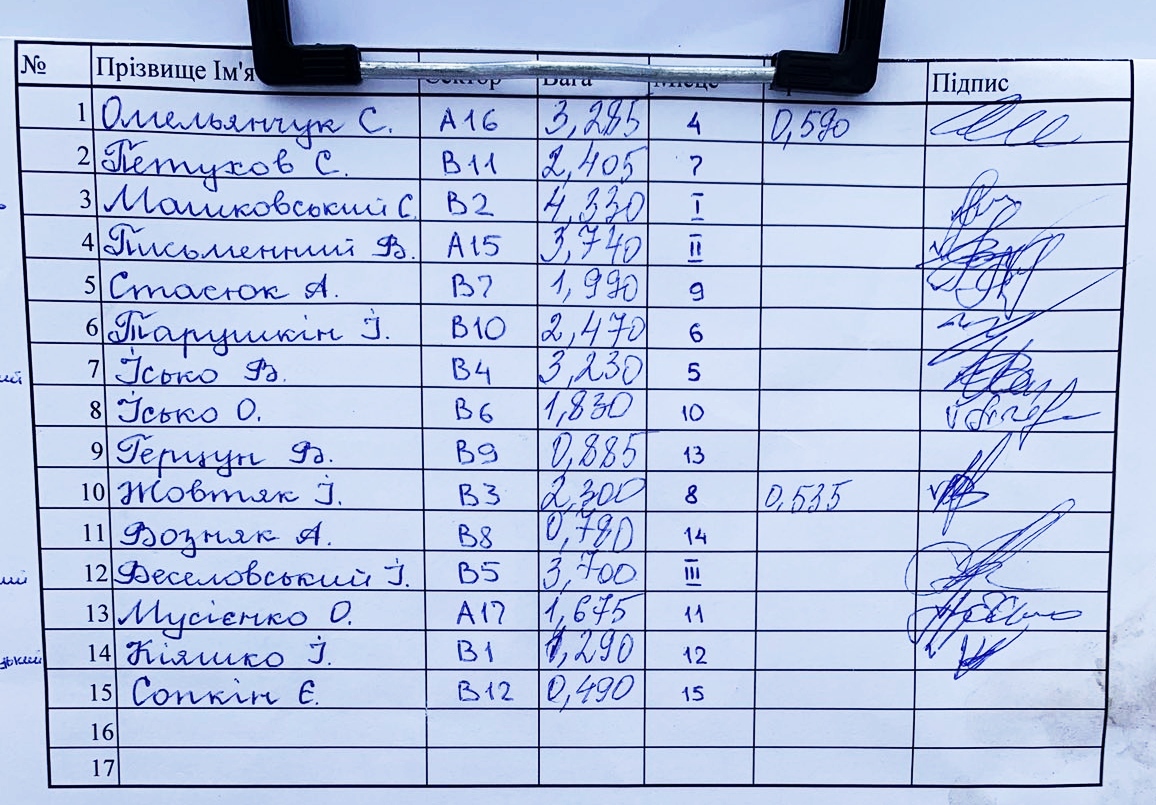 № Прізвище Ім'я Сектор Вага Місце Підпис
1 Омельянчук С. А16 3,285 4 0,590
2 Петухов С. В11 2,405 7
3 Машковський С. В2 4,330 I
4 Письменний В. А15 3,740 II
5 Стасюк А. В7 1,990 9
6 Тарушкін І. В10 2,470 6
7 Ісько В. В4 3,230 5
8 Ісько О. В6 1,830 10
9 Герцун В. В9 0,885 13
10 Жовтяк І. В3 2,300 8 0,535
11 Возняк А. В8 0,780 14
12 Веселовський І. В5 3,700 III
13 Мусієнко О. А17 1,675 11
14 Кіяшко І. В1 1,290 12
15 Сопкін Є. В12 0,490 15
16
17